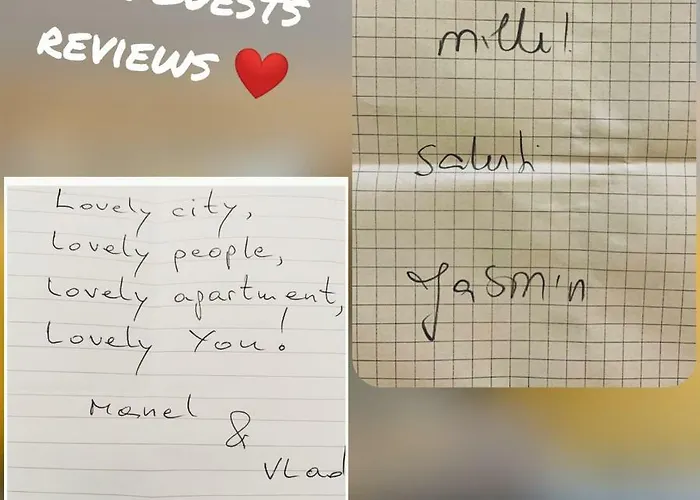 GUESTS
REVIEWS ❤️
Lovely city,
Lovely people,
Lovely apartment,
Lovely You!
Manel
&
Vlad
mille!
Saluti
Yasmin